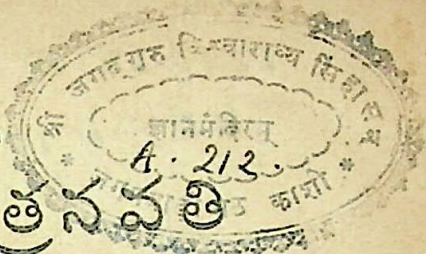 श्री जगद्गुरु विश्वाराध्य सिंहासन
ज्ञानमंदिरम्
A. 212.
काशी
త్రనవతి